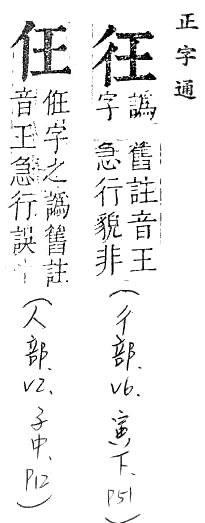 正字通
彺 譌字 舊註音王急行貌非 (彳部、V6、寅下、P51)
仼 字之譌舊註音王急行誤 (人部、V2、子中、P12)